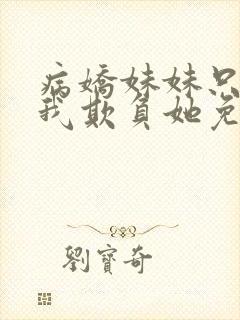 病嬌妹妹只
我欺負她免
劉寶奇